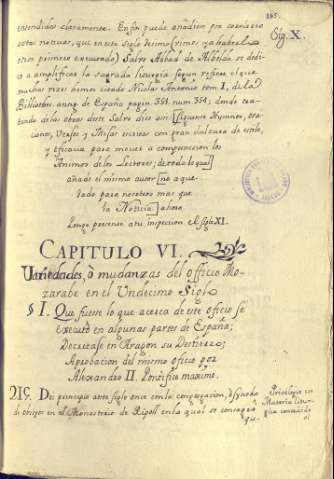 185.
Sig. X.
entendidas claramente. En fin puede añadirse por corolario
estas notizias, qui en este Siglo decimo
otro primero executado) Salvo Abbad de Albelda se dedi-
có a amplificar la sagrada liturgia segun refiere el que
muchas vezes hemos citado Nicolas Antonio tom I. de la
Bibliothec. antiq. de España pagin. 381 num. 354; donde tra-
tando de las obras deste Salvo dice assi [Escrivio Hymnos, ora-
ciones, Versos y Missas escritas con gran dulzura de estilo,
y eficacia para mover a compunccion los
Animos de los Lectores; de todo lo qual]
añade el mismo autor [no a que-
dado para nosotros mas que
la Noticia] ahora
Pongo presente a tu inspeccion el Siglo XI.
CAPITULO VI.
Variedades, ò mudanzas del officio Mo-
zarabe en el Undecimo Siglo
§ I. Que fuesse lo que acerca de este oficio se
executó en algunas partes de España;
Decretase en Aragon su Destierro;
Aprobacion del mismo oficio por
Alexandro II. Pontifice maximo.
215. Dió principio a este siglo once con la congregacion, ò Synodo
de obispos en el Monasterio de Ripoll en la qual se
que-
Privilegio en
Materia litur-
gica concedido